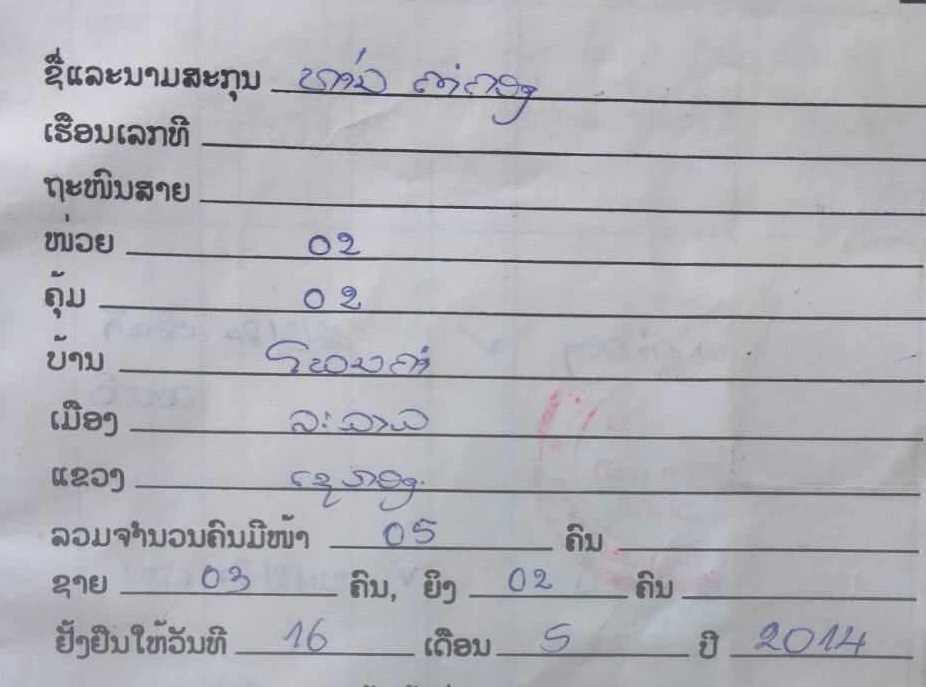 ຊື່ແລະນາມສະກຸນ ທ່ານ ຄຳຕອງ
ເຮືອນເລກທີ
ຖະໜົນສາຍ
ໜ່ວຍ 02
ຄຸ້ມ 02
ບ້ານ ໂພນຄຳ
ເມືອງ ລະມາມ
ແຂວງ ເຊກອງ
ລວມຈຳນວນຄົນມີໜ້າ 05 ຄົນ
ຊາຍ 03 ຄົນ, ຍິງ 02 ຄົນ
ຢັ້ງຢືນໃຫ້ວັນທີ 16 ເດືອນ 5 ປີ 2014